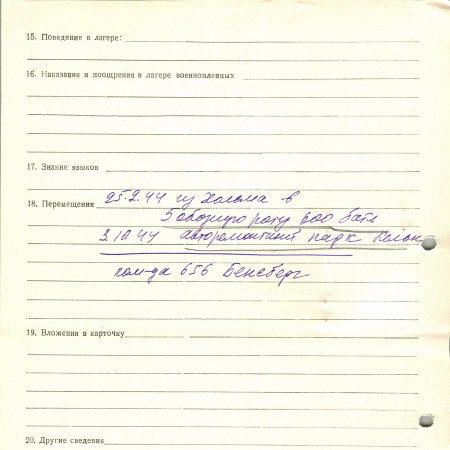 15. Поведение в лагере:
16. Наказания и поощрения в лагере военнопленных
17. Знание языков
18. Перемещения 25.2.44 из Холма в
5 обозную роту 600 бат.
3.10.44 авторемонтный парк Кельн
ком-да 656 Бенсберг
19. Вложения в карточку
20. Другие сведения